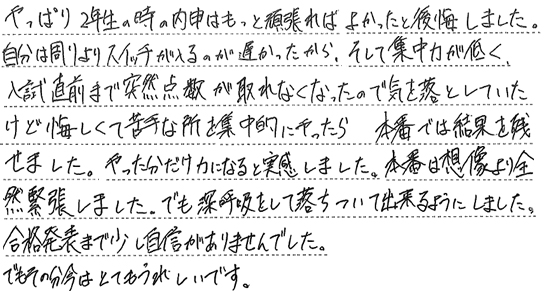 やっぱり2年生の時の内申はもっと頑張ればよかったと後悔しました。
自分は周りよりスイッチが入るのが遅かったから、そして集中力が低く、
入試直前まで突然点数が取れなくなったので気を落としていた
けど悔しくて苦手な所を集中的にやったら 本番では結果を残
せました。やった分だけ力になると実感しました。本番は想像より全
然緊張しました。でも深呼吸をして落ちついて出来るようにしました。
合格発表まで少し自信がありませんでした。
でもその分今はとてもうれしいです。